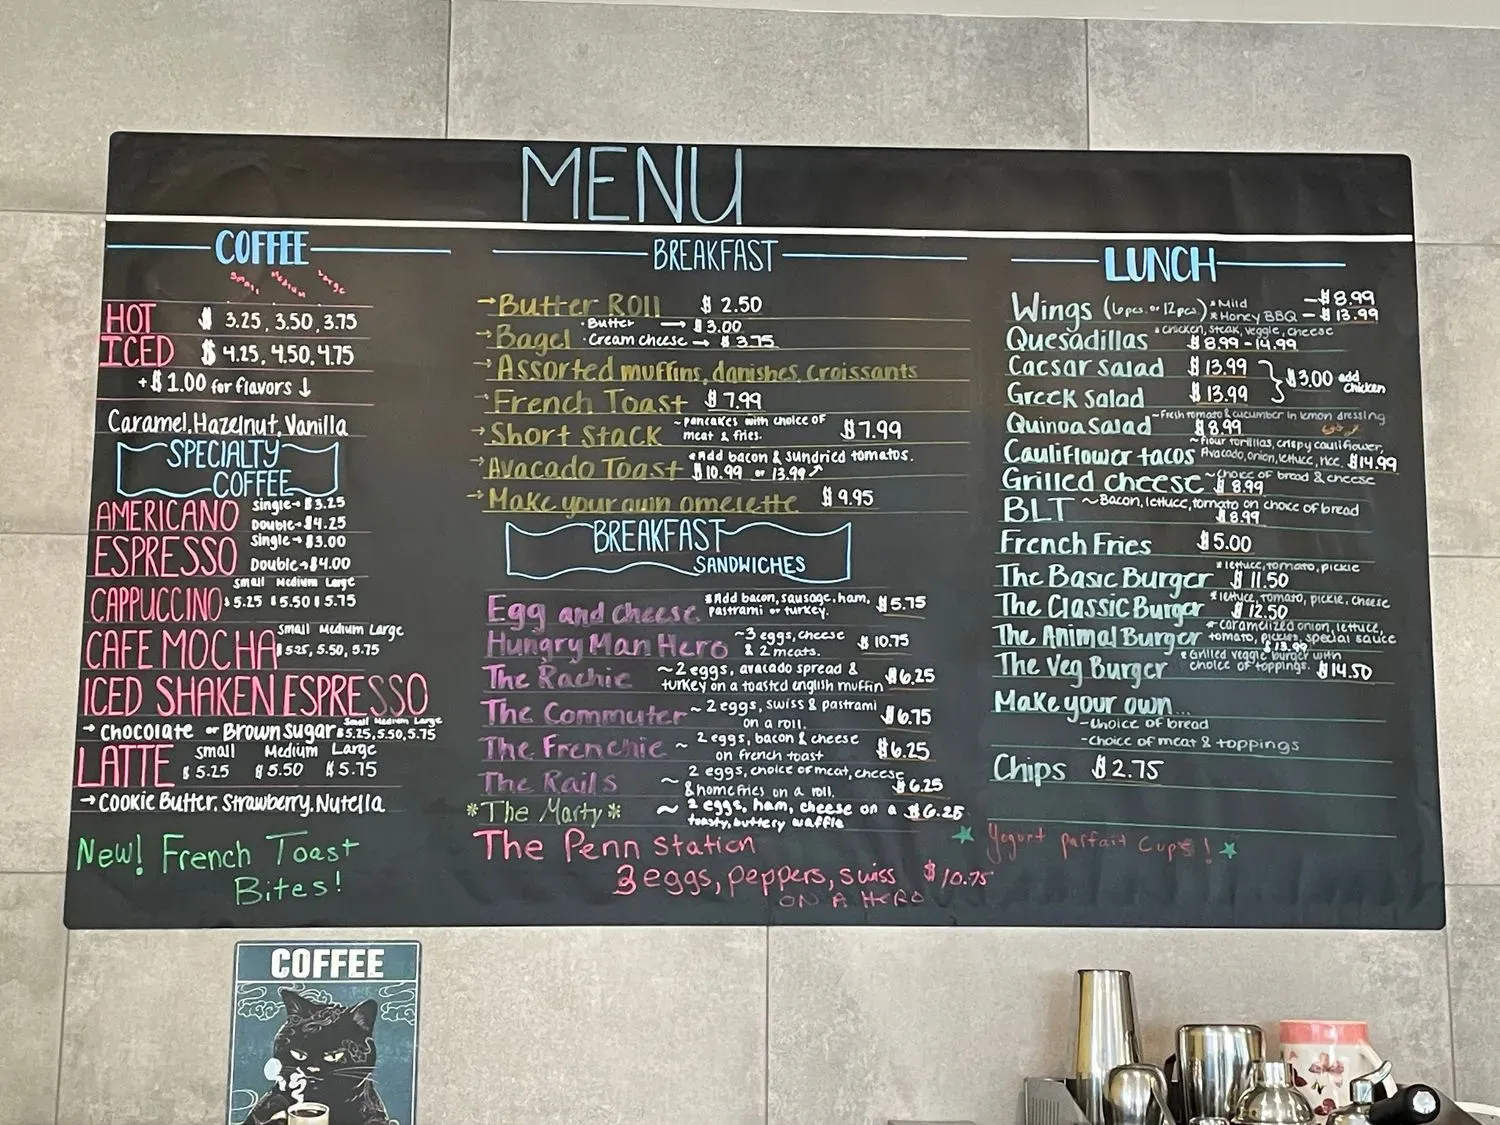 MENU
COFFEE
Small Medium Large
HOT $ 3.25, 3.50, 3.75
ICED $ 4.25, 4.50, 4.75
+$1.00 for flavors ↓
Caramel, Hazelnut, Vanilla
SPECIALTY
COFFEE
AMERICANO Single→$3.25
Double→$4.25
ESPRESSO Single→$3.00
Double→$4.00
Small Medium Large
CAPPUCCINO $5.25 $5.50 $5.75
Small Medium Large
CAFE MOCHA $5.25, 5.50, 5.75
ICED SHAKEN ESPRESSO
Small Medium Large
→ Chocolate or Brown Sugar $5.25, 5.50, 5.75
Small Medium Large
LATTE $5.25 $5.50 $5.75
→ Cookie Butter, Strawberry, Nutella
New! French Toast
Bites!
BREAKFAST
→ Butter Roll $ 2.50
→ Bagel · Butter → $3.00
· Cream cheese → $3.75
→ Assorted muffins, danishes, croissants
→ French Toast $7.99
→ Short Stack ~ pancakes with choice of
meat & fries. $7.99
→ Avacado Toast *Add bacon & sundried tomatos.
$10.99 or 13.99
→ Make your own omelette $9.95
BREAKFAST
SANDWICHES
Egg and cheese *Add bacon, sausage, ham,
pastrami or turkey. $5.75
Hungry Man Hero ~3 eggs, cheese
& 2 meats. $10.75
The Rachie ~2 eggs, avacado spread &
turkey on a toasted english muffin $6.25
The Commuter ~ 2 eggs, swiss & pastrami
on a roll. $6.75
The Frenchie ~ 2 eggs, bacon & cheese
on french toast $6.25
The Rails ~ 2 eggs, choice of meat, cheese
& homefries on a roll. $6.25
*The Marty* ~ 2 eggs, ham, cheese on a
toasty, buttery waffle $6.25
The Penn Station
3 eggs, peppers, swiss $10.75
ON A HERO
LUNCH
Wings (6pcs. or 12pcs.) *Mild —$8.99
*Honey BBQ —$13.99
Quesadillas *chicken, steak, veggie, cheese
$8.99-14.99
Caesar Salad $13.99
Greek Salad $13.99
$3.00 add
chicken
Quinoa Salad ~Fresh tomato & cucumber in lemon dressing
$8.99
Cauliflower tacos ~flour torillas, crispy cauliflower,
Avacado, onion, lettuce, rice. $14.99
Grilled cheese ~choice of bread & cheese
$8.99
BLT ~Bacon, lettuce, tomato on choice of bread
$8.99
French Fries $5.00
The Basic Burger *lettuce, tomato, pickle
$11.50
The Classic Burger *lettuce, tomato, pickle, cheese
$12.50
The Animal Burger *caramelized onion, lettuce,
tomato, pickles, special sauce
$13.99
The Veg Burger *Grilled veggie burger with
choice of toppings. $14.50
Make your own...
-Choice of bread
-Choice of meat & toppings
Chips $2.75
Yogurt parfait Cups!
COFFEE